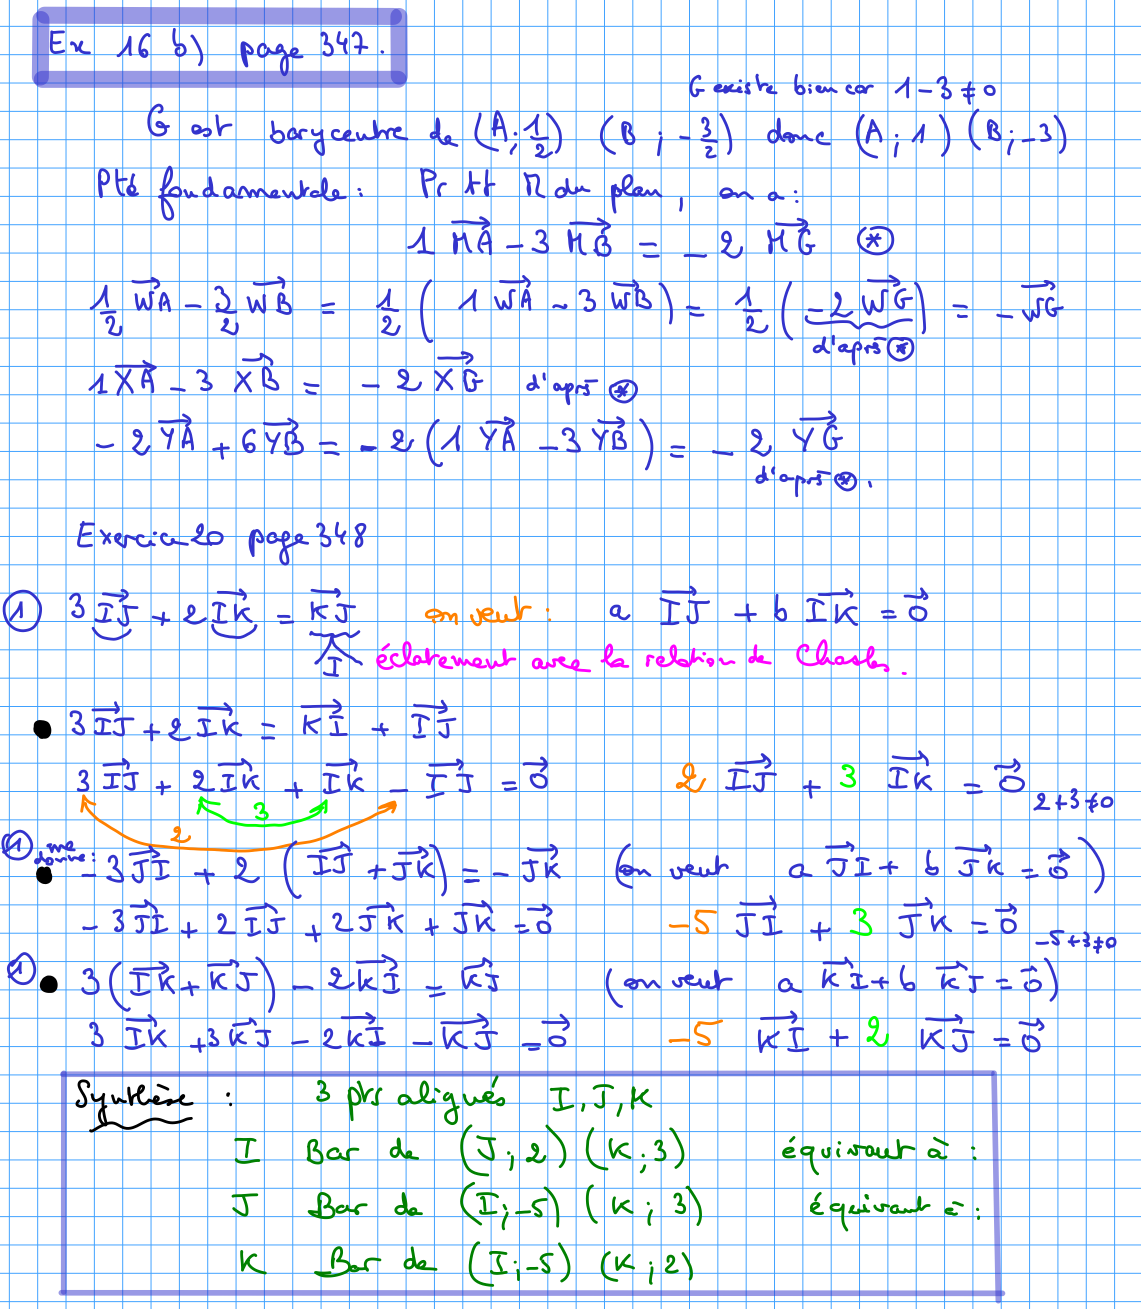 Ex 16 b) page 347.
G existe bien car 1 - 3 ≠ 0
G est barycentre de (A; 1/2) (B; -3/2) donc (A; 1) (B; -3)
Pté fondamentale: Pr tt M du plan, on a:
1 \vec{MA} - 3 \vec{MB} = -2 \vec{MG} (*)
1/2 \vec{WA} - 3/2 \vec{WB} = 1/2 (1 \vec{WA} - 3 \vec{WB}) = 1/2 (-2 \vec{WG}) = -\vec{WG}
d'après (*)
1 \vec{XA} - 3 \vec{XB} = -2 \vec{XG} d'après (*)
-2 \vec{YA} + 6 \vec{YB} = -2 (1 \vec{YA} - 3 \vec{YB}) = -2 \vec{YG}
d'après (*).
Exercice 20 page 348
(1) 3 \vec{IJ} + 2 \vec{IK} = \vec{KJ} on veut: a \vec{IJ} + b \vec{IK} = \vec{0}
I éclatement avec la relation de Chasles.
• 3 \vec{IJ} + 2 \vec{IK} = \vec{KI} + \vec{IJ}
3 \vec{IJ} + 2 \vec{IK} + \vec{IK} - \vec{IJ} = \vec{0} 2 \vec{IJ} + 3 \vec{IK} = \vec{0} 2+3≠0
3
2
(1) me donne:
• -3 \vec{JI} + 2 (\vec{IJ} + \vec{JK}) = -\vec{JK} (on veut a \vec{JI} + b \vec{JK} = \vec{0})
-3 \vec{JI} + 2 \vec{IJ} + 2 \vec{JK} + \vec{JK} = \vec{0} -5 \vec{JI} + 3 \vec{JK} = \vec{0} -5+3≠0
(1) • 3 (\vec{IK} + \vec{KJ}) - 2 \vec{KI} = \vec{KJ} (on veut a \vec{KI} + b \vec{KJ} = \vec{0})
3 \vec{IK} + 3 \vec{KJ} - 2 \vec{KI} - \vec{KJ} = \vec{0} -5 \vec{KI} + 2 \vec{KJ} = \vec{0}
Synthèse : 3 pts alignés I, J, K
I Bar de (J; 2) (K; 3) équivaut à :
J Bar de (I; -5) (K; 3) équivaut à :
K Bar de (I; -5) (K; 2)